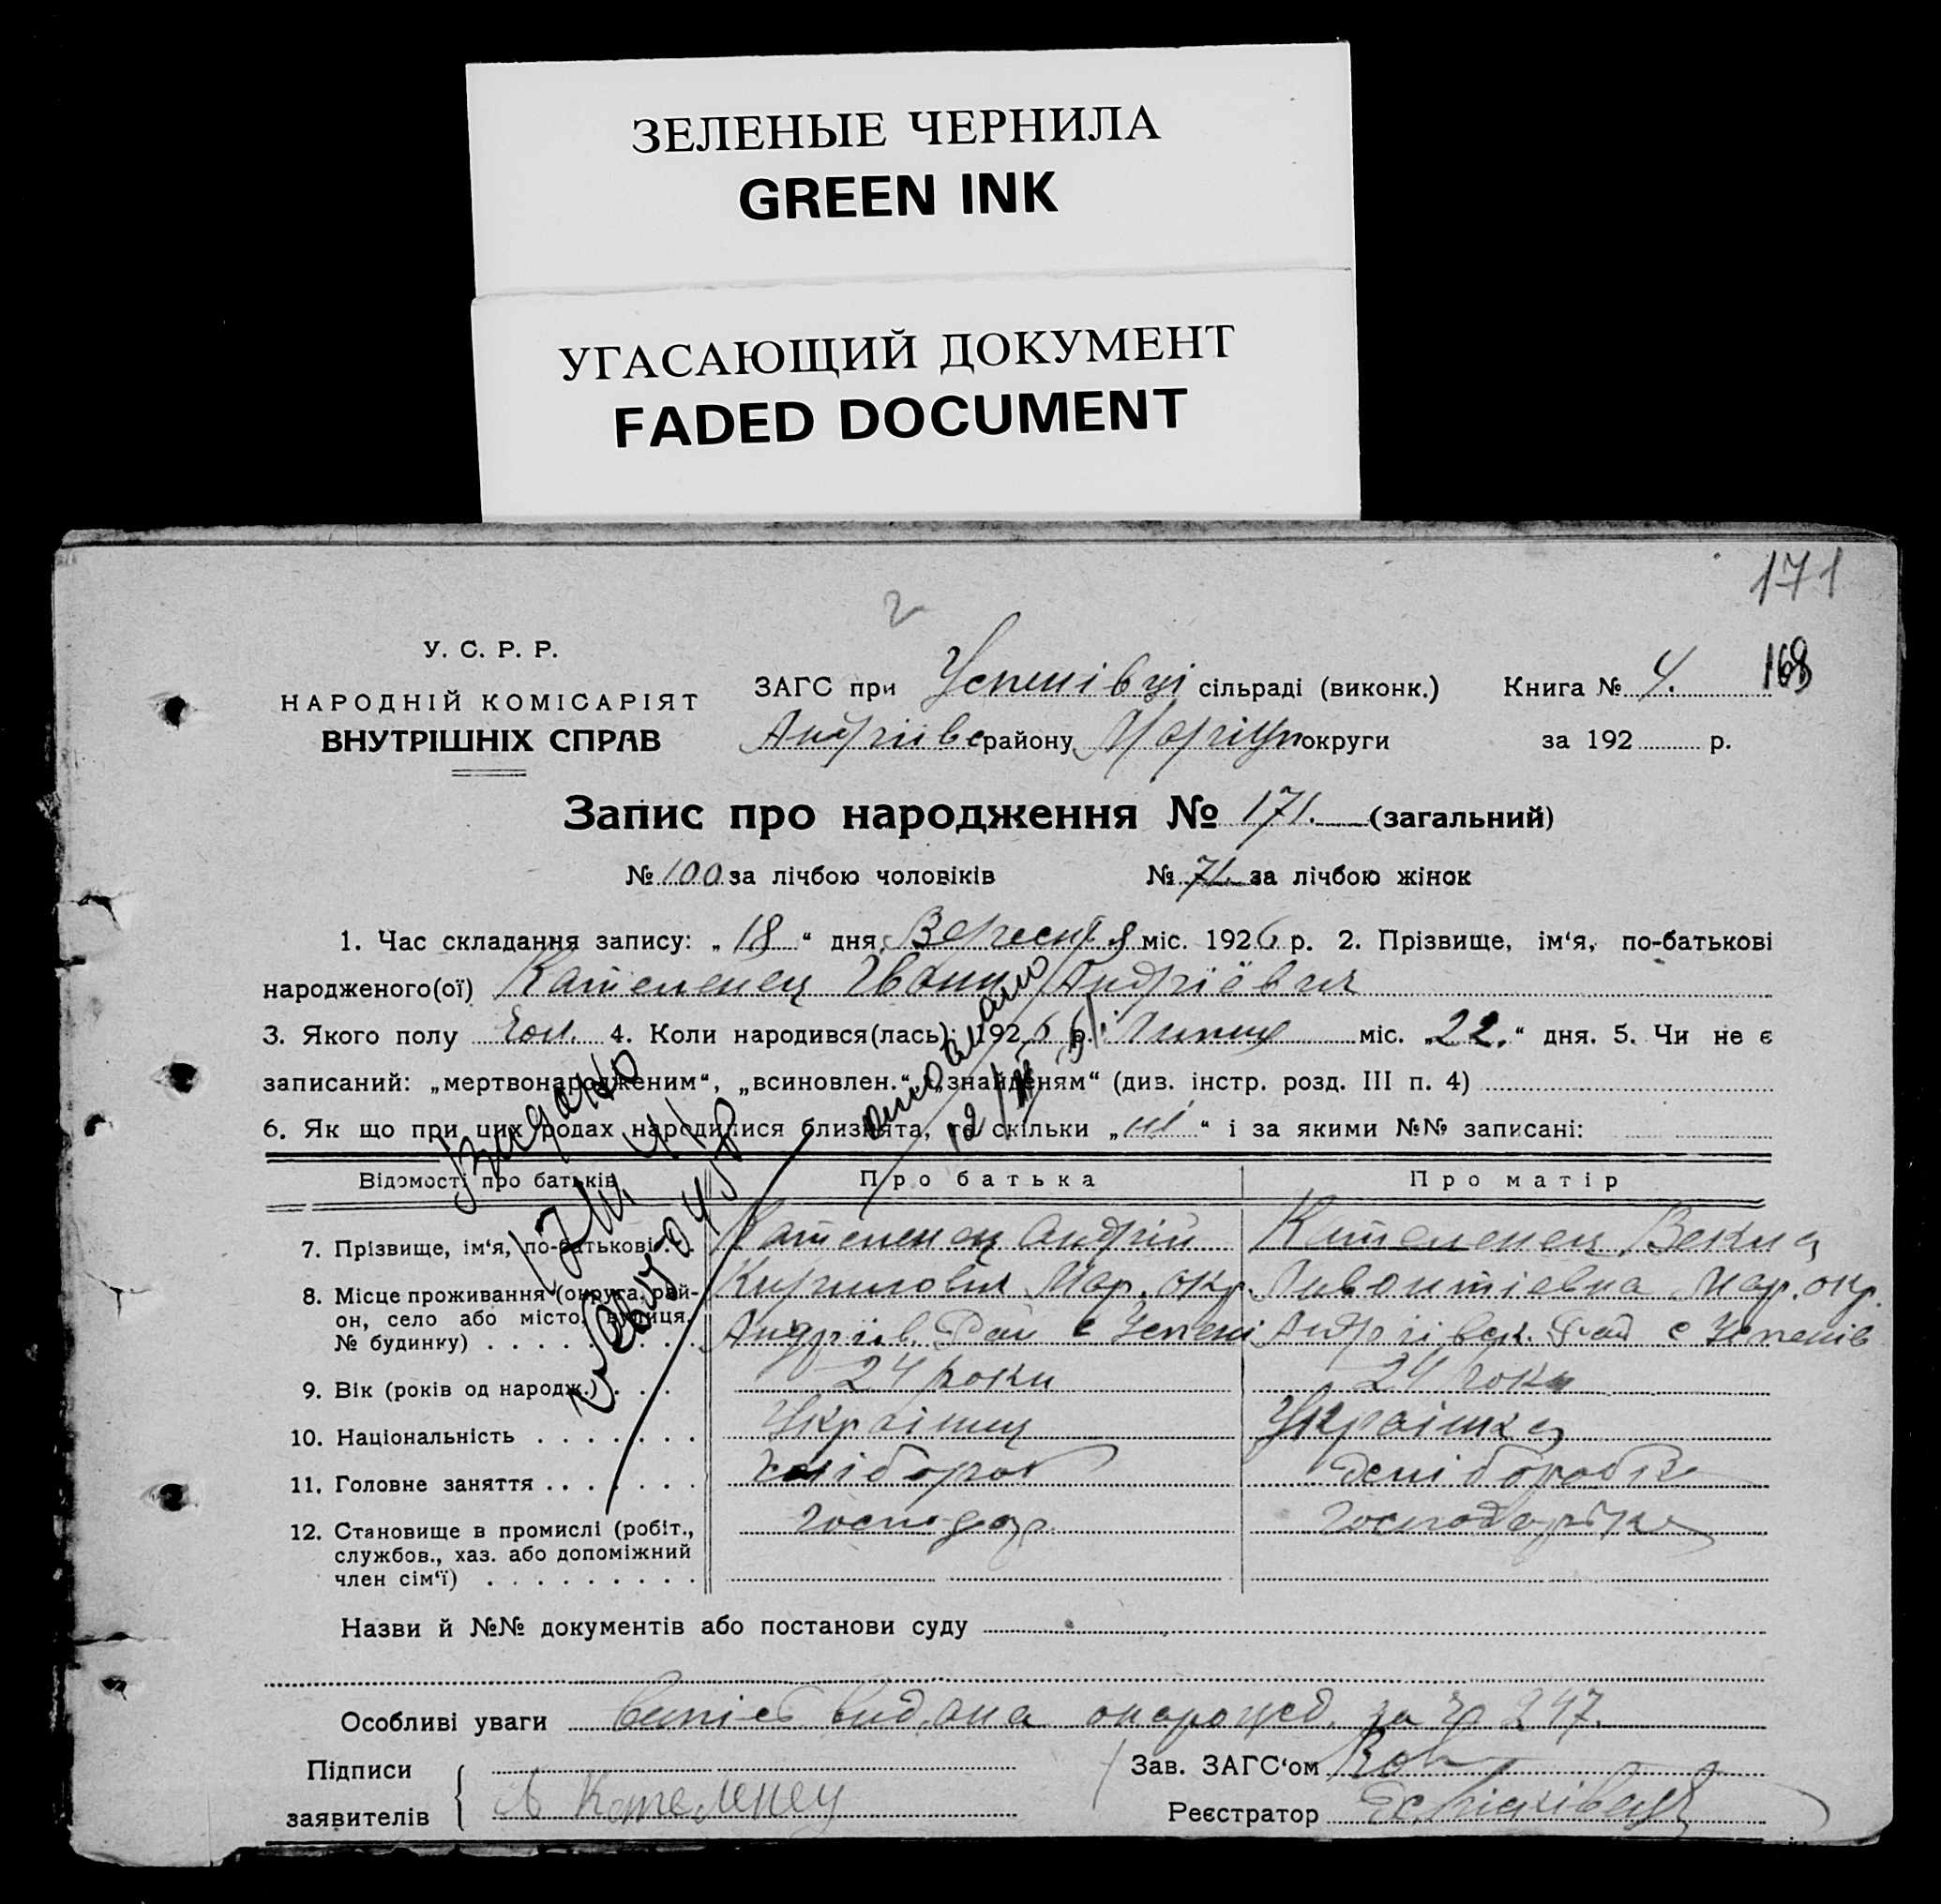 ЗЕЛЕНЫЕ ЧЕРНИЛА
GREEN INK
УГАСАЮЩИЙ ДОКУМЕНТ
FADED DOCUMENT
171
2
У. С. Р. Р.
НАРОДНІЙ КОМІСАРІЯТ
ВНУТРІШНІХ СПРАВ
ЗАГС при Успенівці сільраді (виконк.) Книга № 4. 168
Андріівс району Маріуп округи за 192 р.
Запис про народження № 171. (загальний)
№ 100 за лічбою чоловіків № 71. за лічбою жінок
1. Час складання запису: „ 18 “ дня Вересня міс. 1926 р. 2. Прізвище, ім‘я, по-батькові
народженого(ої) Кателенец Іван Андріёвич
3. Якого полу Чол. 4. Коли народився(лась): 1926 р. Липця міс. „22.“ дня. 5. Чи не є
записаний: „мертвонародженим“, „всиновлен.“ „знайденям“ (див. інстр. розд. III п. 4)
6. Як що при цих родах народилися близнята, то скільки „ “ і за якими №№ записані:
Відомості про батьків Про батька Про матір
7. Прізвище, ім‘я, по-батькові . . . Кателенец Андрій Кателенец
8. Місце проживання (округа, рай- Кирилович Мар. окр. Мар. окр.
он, село або місто, вулиця, Андріів. Рай с Успені Андріівск. Рай с Успенів
№ будинку) . . . . . . . . . .
9. Вік (років од народж.) . . . 24 роки 24 роки
10. Національність . . . . . . . Українец Українка
11. Головне заняття . . . . . . . хлібороб
12. Становище в промислі (робіт., господар. господарка
службов., хаз. або допоміжний
член сім‘ї) . . . . . . . . .
Назви й №№ документів або постанови суду
Особливі уваги видана за 247.
Підписи Зав. ЗАГС‘ом
заявителів А Кателенец Реєстратор